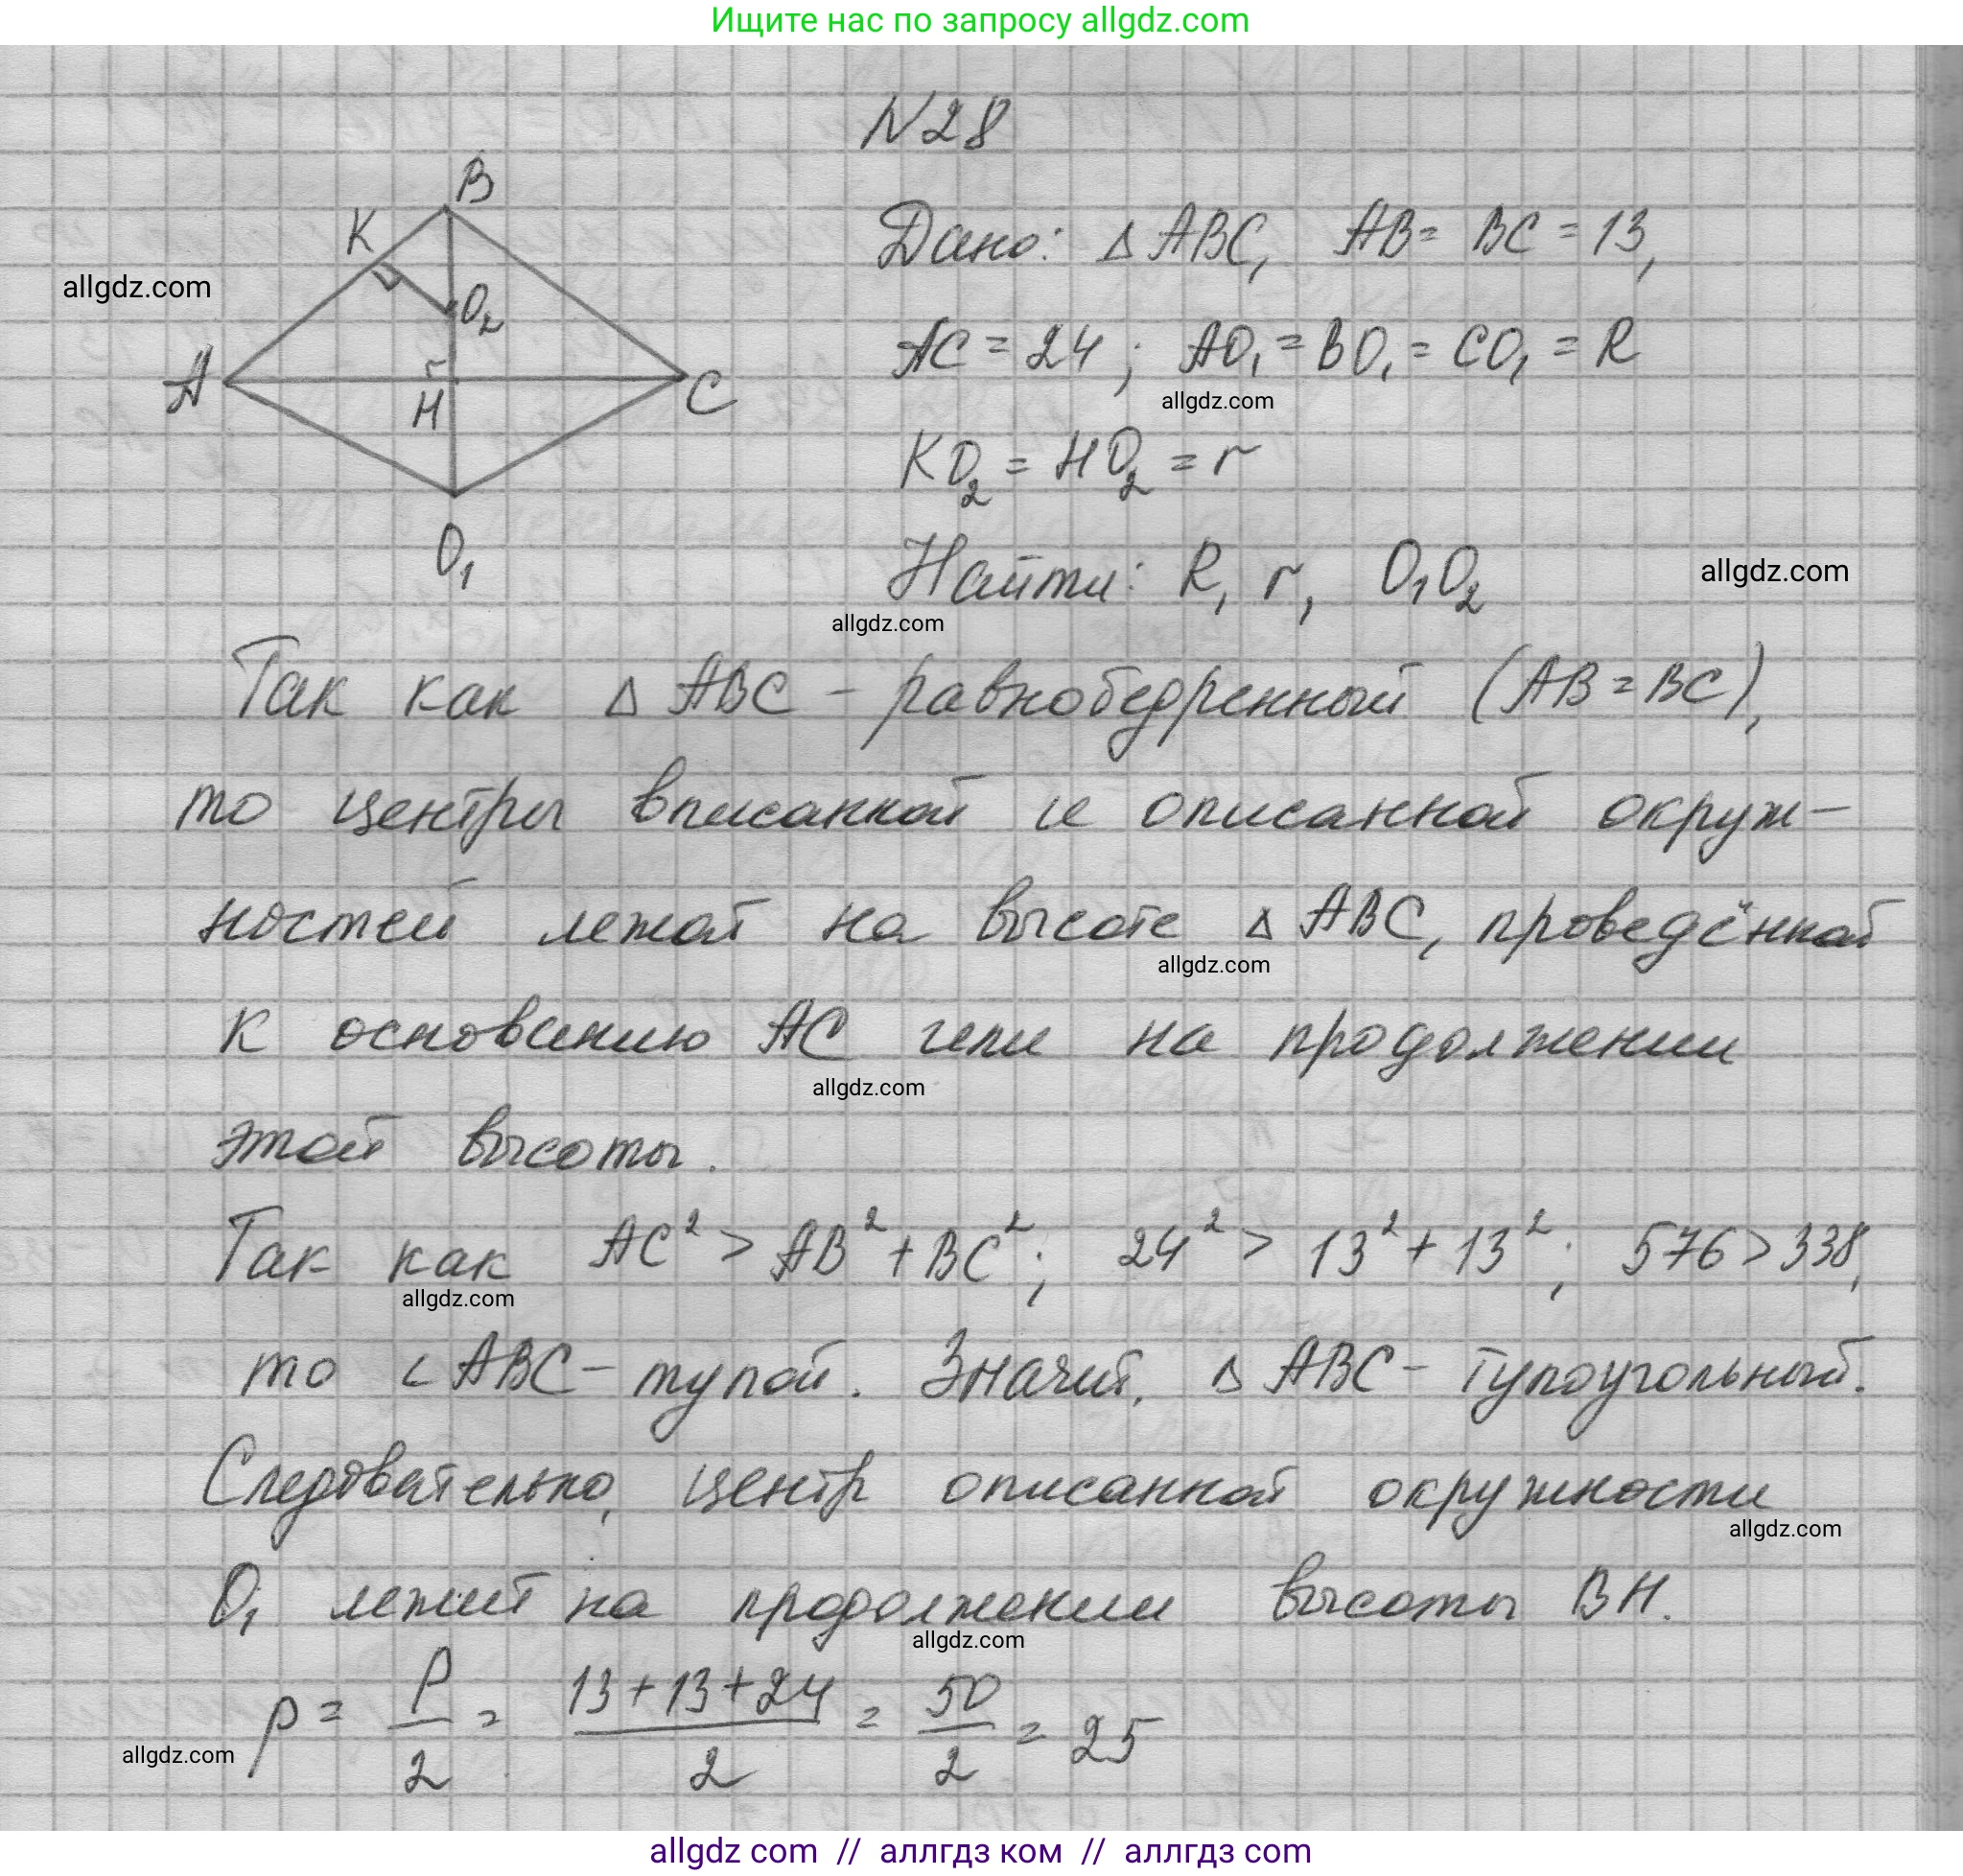 Ищите нас по запросу allgdz.com
N28
B
K
O₂
A
H
C
O₁
allgdz.com
Дано: △ABC, AB = BC = 13,
AC = 24; AO₁ = BO₁ = CO₁ = R
allgdz.com
KO₂ = HO₂ = r
Найти: R, r, O₁O₂
allgdz.com
allgdz.com
Так как △ABC – равнобедренный (AB = BC),
то центры вписанной и описанной окруж–
ностей лежат на высоте △ABC, проведённой
allgdz.com
к основанию AC или на продолжении
allgdz.com
этой высоты.
Так как AC² > AB² + BC²; 24² > 13² + 13²; 576 > 338,
allgdz.com
то ∠ABC – тупой. Значит, △ABC – тупоугольный.
Следовательно, центр описанной окружности
allgdz.com
O₁ лежит на продолжении высоты BH.
allgdz.com
p = P/2 = (13 + 13 + 24)/2 = 50/2 = 25
allgdz.com
allgdz com // аллгдз ком // аллгдз com